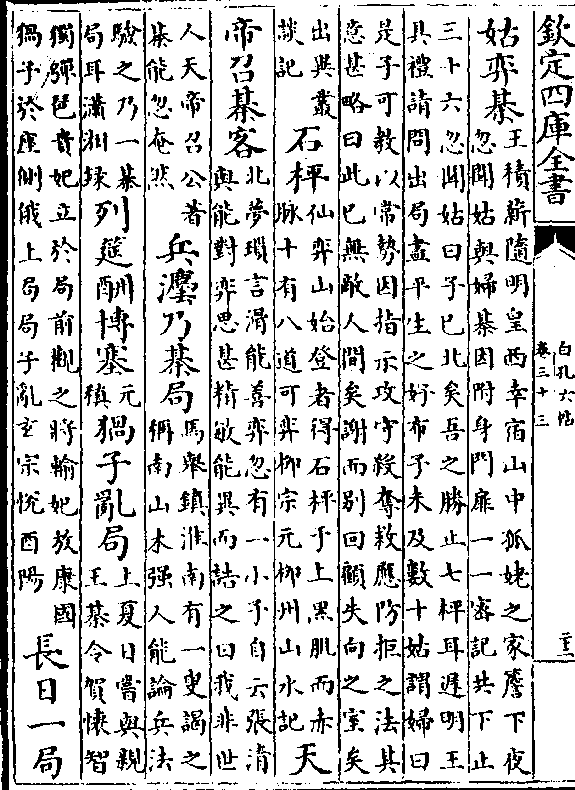 欽定四庫全書
白孔六帖
卷三十三
二十二
姑弈棊王積薪隨明皇西幸宿山中孤姥之家簷下夜
忽聞姑與婦棊因附身門扉一一密記共下止
三十六忽聞姑曰子已北矣吾之勝止七枰耳遲明王
具禮請問出局盡平生之好布子未及數十姑謂婦曰
是子可教以常勢因指示攻守殺奪救應防拒之法其
意甚略曰此已無敵人間矣謝而别回顧失向之室矣
出異叢
談記
石枰仙弈山始登者得石枰于上黑肌而赤
脉十有八道可弈柳宗元柳州山水記
天
帝召棊客北夢瑣言滑能善弈忽有一小子自云張清
與能對弈思甚精敏能異而詰之曰我非世
人天帝召公著
棊能忽奄然
兵瀍乃棊局馬舉鎮淮南有一叟謁之
稱南山木强人能論兵法
駭之乃一棊
局耳瀟湘録
列筵酬博塞元
稹
猧子亂局上夏日嘗與親
王棊令賀懷智
獨彈琵琶貴妃立於局前觀之將輸妃放康國
猧子於座側俄上局局子亂玄宗悅酉陽
長日一局